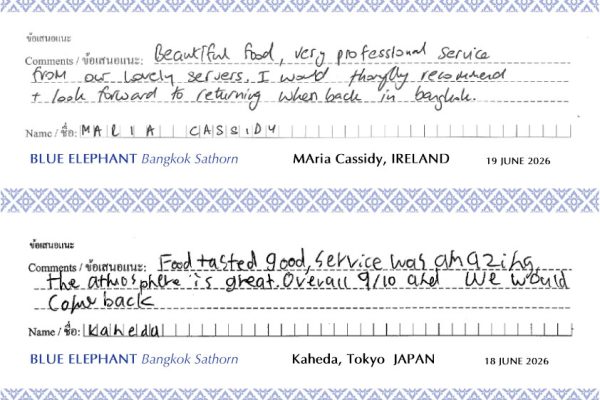 ข้อเสนอแนะ
Comments / ข้อเสนอแนะ: Beautiful food, very professional service
from our lovely servers. I would thoroughly recommend
+ look forward to returning when back in bangkok.
Name / ชื่อ: MARIA CASSIDY
BLUE ELEPHANT Bangkok Sathorn MAria Cassidy, IRELAND 19 JUNE 2026
ข้อเสนอแนะ
Comments / ข้อเสนอแนะ: Food tasted good, service was amazing,
the atmosphere is great. Overall 9/10 and We would
Come back
Name / ชื่อ: Kaheda
BLUE ELEPHANT Bangkok Sathorn Kaheda, Tokyo JAPAN 18 JUNE 2026